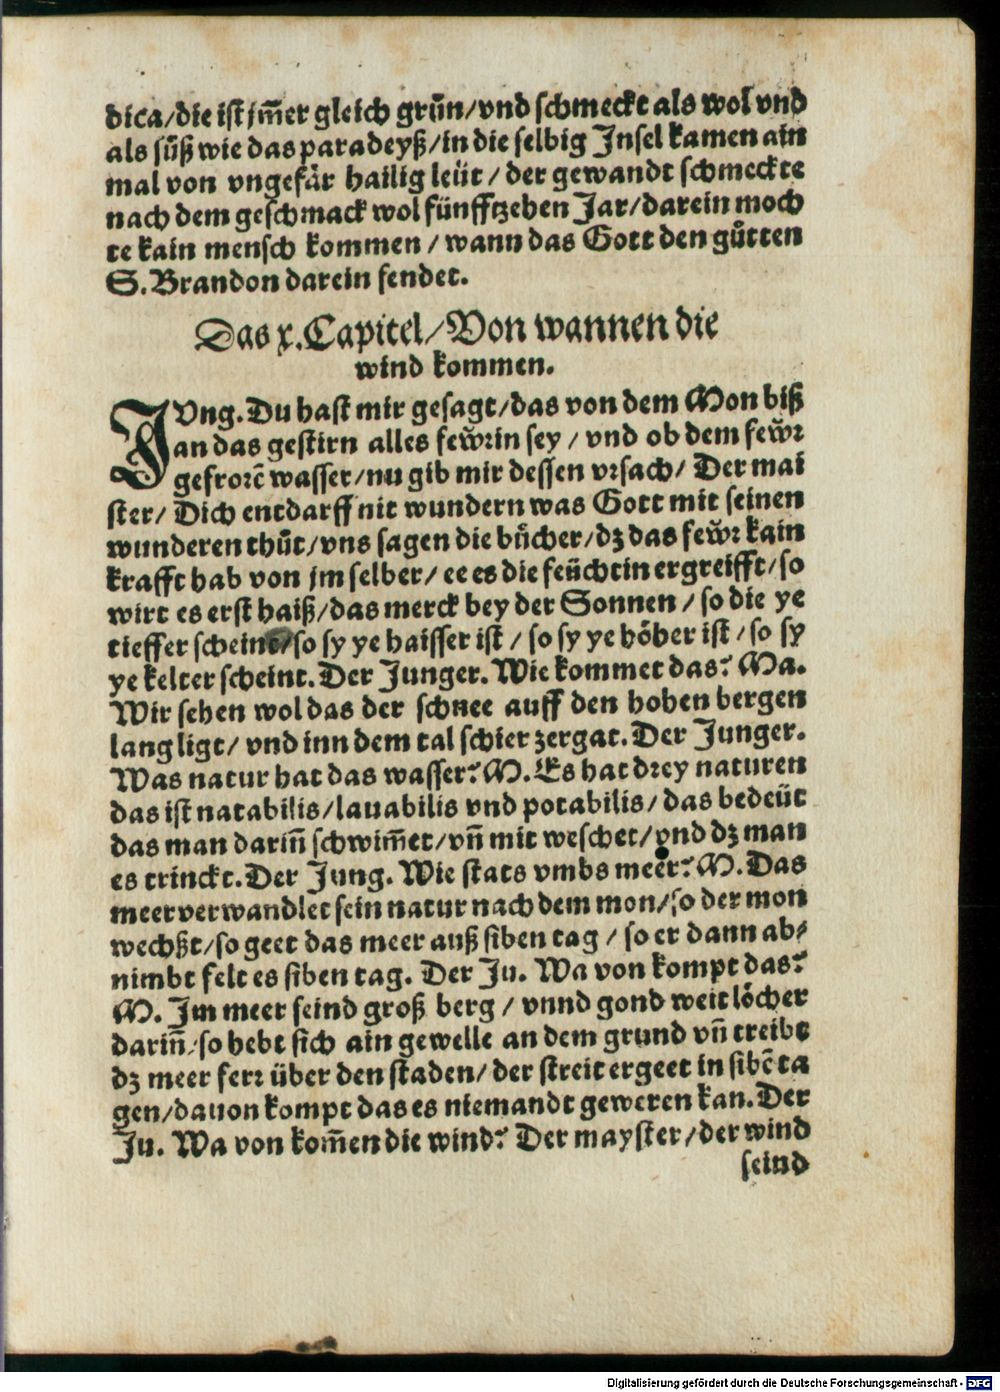 dica/die ist jm̃er gleich grün/vnd schmeckt als wol vnd
als süß wie das paradeyß/in die selbig Insel kamen ain
mal von vngefär hailig leüt/der gewandt schmeckte
nach dem geschmack wol fünfftzehen Jar/darein moch
te kain mensch kommen/wann das Gott den gůtten
S.Brandon darein sendet.
Das x.Capitel/Von wannen die
wind kommen.
JVng.Du hast mir gesagt/das von dem Mon biß
an das gestirn alles feẅrin sey/vnd ob dem feẅr
gefrorẽ wasser/nu gib mir dessen vrsach/Der mai
ster/Dich entdarff nit wundern was Gott mit seinen
wunderen thůt/vns sagen die bücher/dz das feẅr kain
krafft hab von jm selber/ee es die feüchtin ergreifft/so
wirt es erst haiß/das merck bey der Sonnen/so die ye
tieffer scheint/so sy ye haisser ist/so sy ye höher ist/so sy
ye kelter scheint.Der Junger.Wie kommet das? Ma.
Wir sehen wol das der schnee auff den hohen bergen
lang ligt/vnd inn dem tal schier zergat.Der Junger.
Was natur hat das wasser? M.Es hat drey naturen
das ist natabilis/lauabilis vnd potabilis/das bedeüt
das man dariñ schwim̃et/vñ mit weschet/vnd dz man
es trinckt.Der Jung.Wie stats vmbs meer? M.Das
meer verwandlet sein natur nach dem mon/so der mon
wechßt/so geet das meer auß siben tag/so er dann ab-
nimbt felt es siben tag. Der Ju. Wa von kompt das?
M. Im meer seind groß berg/vnnd gond weit löcher
dariñ/so hebt sich ain gewelle an dem grund vñ treibt
dz meer ferr über den staden/der streit ergeet in sibẽ ta
gen/dauon kompt das es niemandt geweren kan.Der
Ju. Wa von kom̃en die wind? Der mayster/der wind
seind
Digitalisierung gefördert durch die Deutsche Forschungsgemeinschaft - DFG